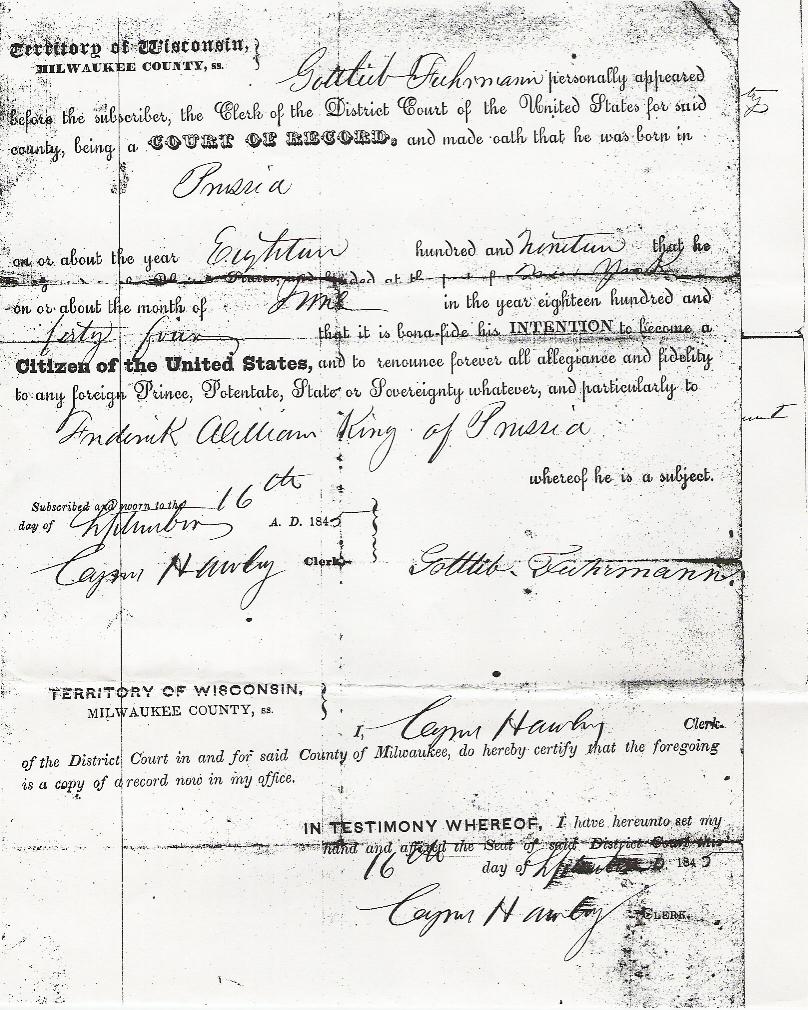 Territory of Wisconsin,
MILWAUKEE COUNTY, ss.
Gottlieb Fuhrmann personally appeared
before the subscriber, the Clerk of the District Court of the United States for said
county, being a COURT OF RECORD, and made oath that he was born in
Prussia
on or about the year Eighteen hundred and nineteen that he
States, and landed at the port of New York
on or about the month of June in the year eighteen hundred and
forty four that it is bona-fide his INTENTION to become a
Citizen of the United States, and to renounce forever all allegiance and fidelity
to any foreign Prince, Potentate, State or Sovereignty whatever, and particularly to
Frederick William King of Prussia
whereof he is a subject.
Subscribed and sworn to the 16th
day of September A. D. 184
Clerk.
Gottlieb Fuhrmann
TERRITORY OF WISCONSIN,
MILWAUKEE COUNTY, ss.
I, Hawley Clerk.
of the District Court in and for said County of Milwaukee, do hereby certify that the foregoing
is a copy of a record now in my office.
IN TESTIMONY WHEREOF, I have hereunto set my
hand and affixed the Seal of said District Court this
16th day of September D. 184
Hawley CLERK.